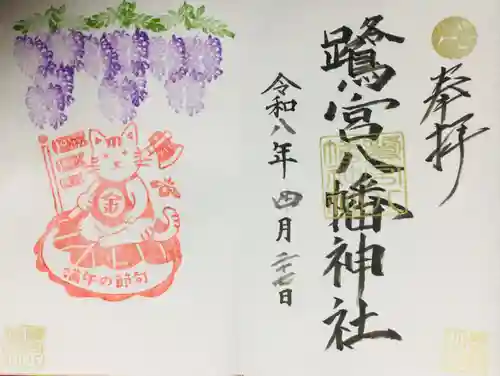 奉拝
鷺宮八幡神社
令和八年四月二十七日
金
端午の節句